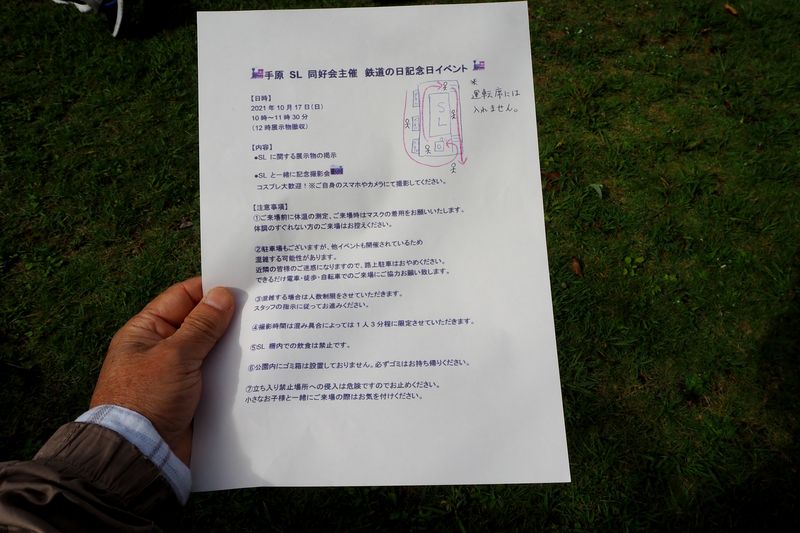 手原 SL 同好会主催 鉄道の日記念日イベント
【日時】
2021年10月17日(日)
10時～11時30分
(12時展示物撤収)
【内容】
●SL に関する展示物の掲示
●SL と一緒に記念撮影会
コスプレ大歓迎！※ご自身のスマホやカメラにて撮影してください。
SL
※
運転席には
入れません。
【注意事項】
①ご来場前に体温の測定、ご来場時はマスクの着用をお願いいたします。
体調のすぐれない方のご来場はお控えください。
②駐車場もございますが、他イベントも開催されているため
混雑する可能性があります。
近隣の皆様のご迷惑になりますので、路上駐車はおやめください。
できるだけ電車・徒歩・自転車でのご来場にご協力お願い致します。
③混雑する場合は人数制限をさせていただきます。
スタッフの指示に従ってお進みください。
④撮影時間は混み具合によっては1人3分程に限定させていただきます。
⑤SL 柵内での飲食は禁止です。
⑥公園内にゴミ箱は設置しておりません。必ずゴミはお持ち帰りください。
⑦立ち入り禁止場所への侵入は危険ですのでお止めください。
小さなお子様と一緒にご来場の際はお気を付けください。